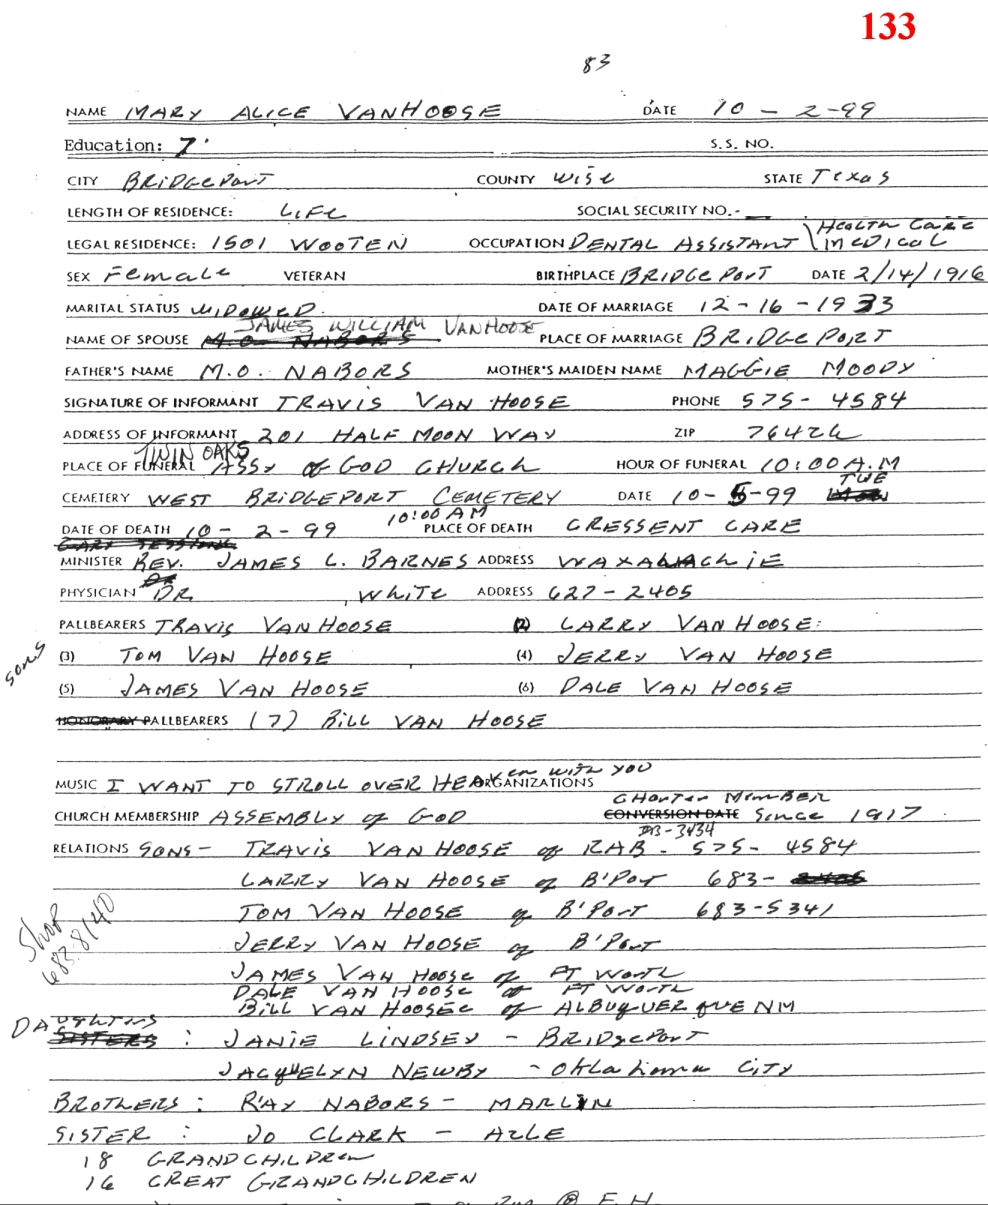 133
83
NAME MARY ALICE VANHOOSE DATE 10 - 2-99
Education: 7 S.S. NO.
CITY BRIDGEPORT COUNTY WISE STATE TEXAS
LENGTH OF RESIDENCE: LIFE SOCIAL SECURITY NO.-
HEALTH CARE
LEGAL RESIDENCE: 1501 WOOTEN OCCUPATION DENTAL ASSISTANT \ MEDICAL
SEX Female VETERAN BIRTHPLACE BRIDGEPORT DATE 2/14/1916
MARITAL STATUS WIDOWED. DATE OF MARRIAGE 12-16-1933
JAMES WILLIAM VANHOOSE
NAME OF SPOUSE M.O. NABORS PLACE OF MARRIAGE BRIDGEPORT
FATHER'S NAME M.O. NABORS MOTHER'S MAIDEN NAME MAGGIE MOODY
SIGNATURE OF INFORMANT TRAVIS VAN HOOSE PHONE 575-4584
ADDRESS OF INFORMANT 201 HALF MOON WAY ZIP 76426
TWIN OAKS
PLACE OF FUNERAL ASSY of GOD CHURCH HOUR OF FUNERAL 10:00 A.M
TUE
CEMETERY WEST BRIDGEPORT CEMETERY DATE 10-5-99 MON
10:00 AM
DATE OF DEATH 10-2-99 PLACE OF DEATH CRESSENT CARE
GARY SESSIONS
MINISTER REV. JAMES L. BARNES ADDRESS WAXAHACHIE
PHYSICIAN DR. WHITE ADDRESS 627-2405
PALLBEARERS TRAVIS VAN HOOSE (2) LARRY VAN HOOSE:
sons
(3) TOM VAN HOOSE (4) JERRY VAN HOOSE
(5) JAMES VAN HOOSE (6) DALE VAN HOOSE
HONORARY PALLBEARERS (7) BILL VAN HOOSE
MUSIC I WANT TO STROLL OVER HEAVEN WITH YOU ORGANIZATIONS
CHARTER MEMBER
CHURCH MEMBERSHIP ASSEMBLY of GOD CONVERSION DATE Since 1917
-3434
RELATIONS SONS - TRAVIS VAN HOOSE of RAB. 575-4584
LARRY VAN HOOSE of B'PORT 683-
Shop
683-8140
TOM VAN HOOSE of B'PORT 683-5341
JERRY VAN HOOSE of B'PORT
JAMES VAN HOOSE of FT WORTH
DALE VAN HOOSE of FT WORTH
BILL VAN HOOSE of ALBUQUERQUE NM
DAUGHTERS
SISTERS : JANIE LINDSEY - BRIDGEPORT
JACQUELYN NEWBY - Oklahoma CITY
BROTHERS : RAY NABORS - MARLIN
SISTER : JO CLARK - AZLE
18 GRANDCHILDREN
16 GREAT GRANDCHILDREN
@ F.H.